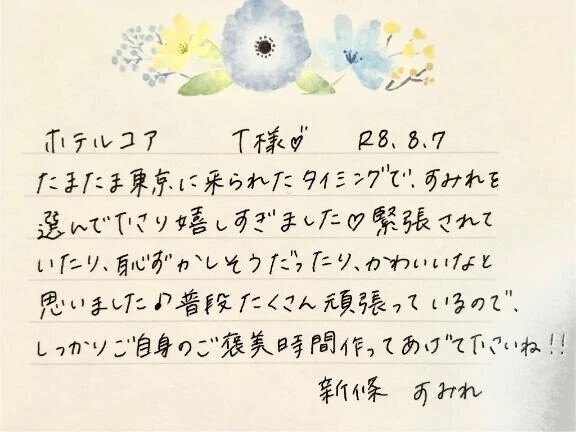 ホテルコア　T様♡　R8.8.7
たまたま東京に来られたタイミングで、すみれを
選んで下さり嬉しすぎました♡緊張されて
いたり、恥ずかしそうだったり、かわいいなと
思いました♪普段たくさん頑張っているので、
しっかりご自身のご褒美時間作ってあげて下さいね!!
新條　すみれ